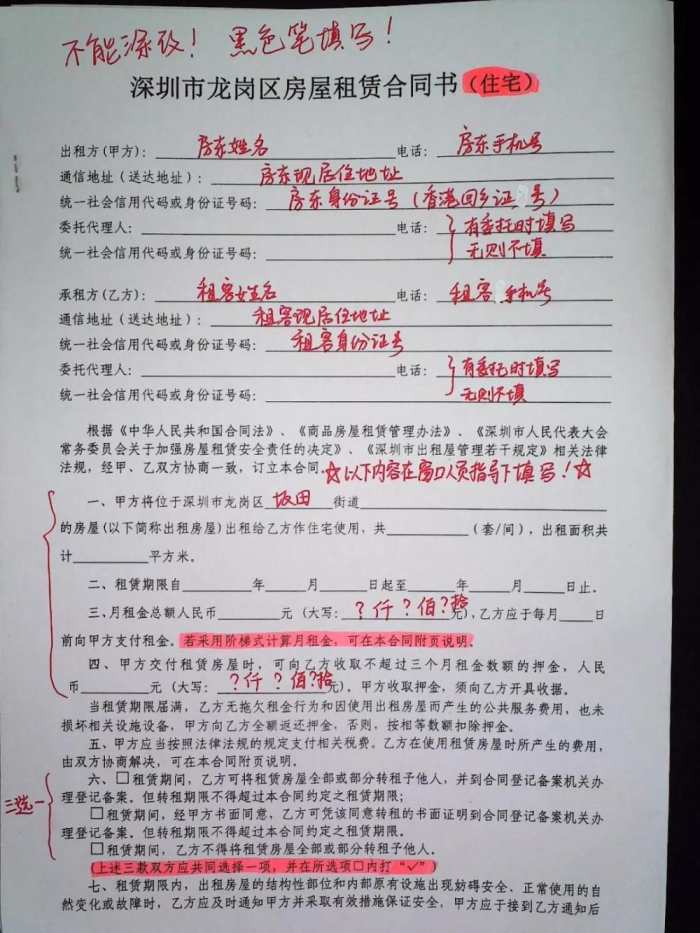 不能涂改！ 黑色笔填写！
深圳市龙岗区房屋租赁合同书（住宅）
出租方(甲方)： 房东姓名 电话： 房东手机号
通信地址（送达地址）： 房东现居住地址
统一社会信用代码或身份证号码： 房东身份证号（香港回乡证 号）
委托代理人： 电话： 有委托时填写
统一社会信用代码或身份证号码： 无则不填
承租方(乙方)： 租客姓名 电话： 租客 手机号
通信地址（送达地址）： 租客现居住地址
统一社会信用代码或身份证号码： 租客身份证号
委托代理人： 电话： 有委托时填写
统一社会信用代码或身份证号码： 无则不填
根据《中华人民共和国合同法》、《商品房屋租赁管理办法》、《深圳市人民代表大会
常务委员会关于加强房屋租赁安全责任的决定》、《深圳市出租屋管理若干规定》相关法律
法规，经甲、乙双方协商一致，订立本合同. ☆以下内容在窗口人员指导下填写！☆
一、甲方将位于深圳市龙岗区 坂田 街道
的房屋(以下简称出租房屋)出租给乙方作住宅使用，共（套/间），出租面积共
计 平方米。
二、租赁期限自 年 月 日起至 年 月 日止.
三、月租金总额人民币 元（大写： ？仟？佰？拾 元），乙方应于每月 日
前向甲方支付租金。若采用阶梯式计算月租金，可在本合同附页说明。
四、甲方交付租赁房屋时，可向乙方收取不超过三个月租金数额的押金，人民
币 元（大写： ？仟？佰？拾 元）。甲方收取押金，须向乙方开具收据。
当租赁期限届满，乙方无拖欠租金行为和因使用出租房屋而产生的公共服务费用，也未
损坏相关设施设备，甲方向乙方全额返还押金，否则，按相等数额扣除押金。
五、甲方应当按照法律法规的规定支付相关税费。乙方在使用租赁房屋时所产生的费用，
由双方协商解决，可在本合同附页说明。
三选一
六、□租赁期间，乙方可将租赁房屋全部或部分转租予他人，并到合同登记备案机关办
理登记备案。但转租期限不得超过本合同约定之租赁期限；
□租赁期间，经甲方书面同意，乙方可凭该同意转租的书面证明到合同登记备案机关办
理登记备案。但转租期限不得超过本合同约定之租赁期限。
□租赁期间，乙方不得将租赁房屋全部或部分转租于他人.
(上述三款双方应共同选择一项，并在所选项□内打“✓”)
七、租赁期限内，出租房屋的结构性部位和内部原有设施出现妨碍安全、正常使用的自
然变化或故障时，乙方应及时通知甲方并采取有效措施保证安全，甲方应于接到乙方通知后